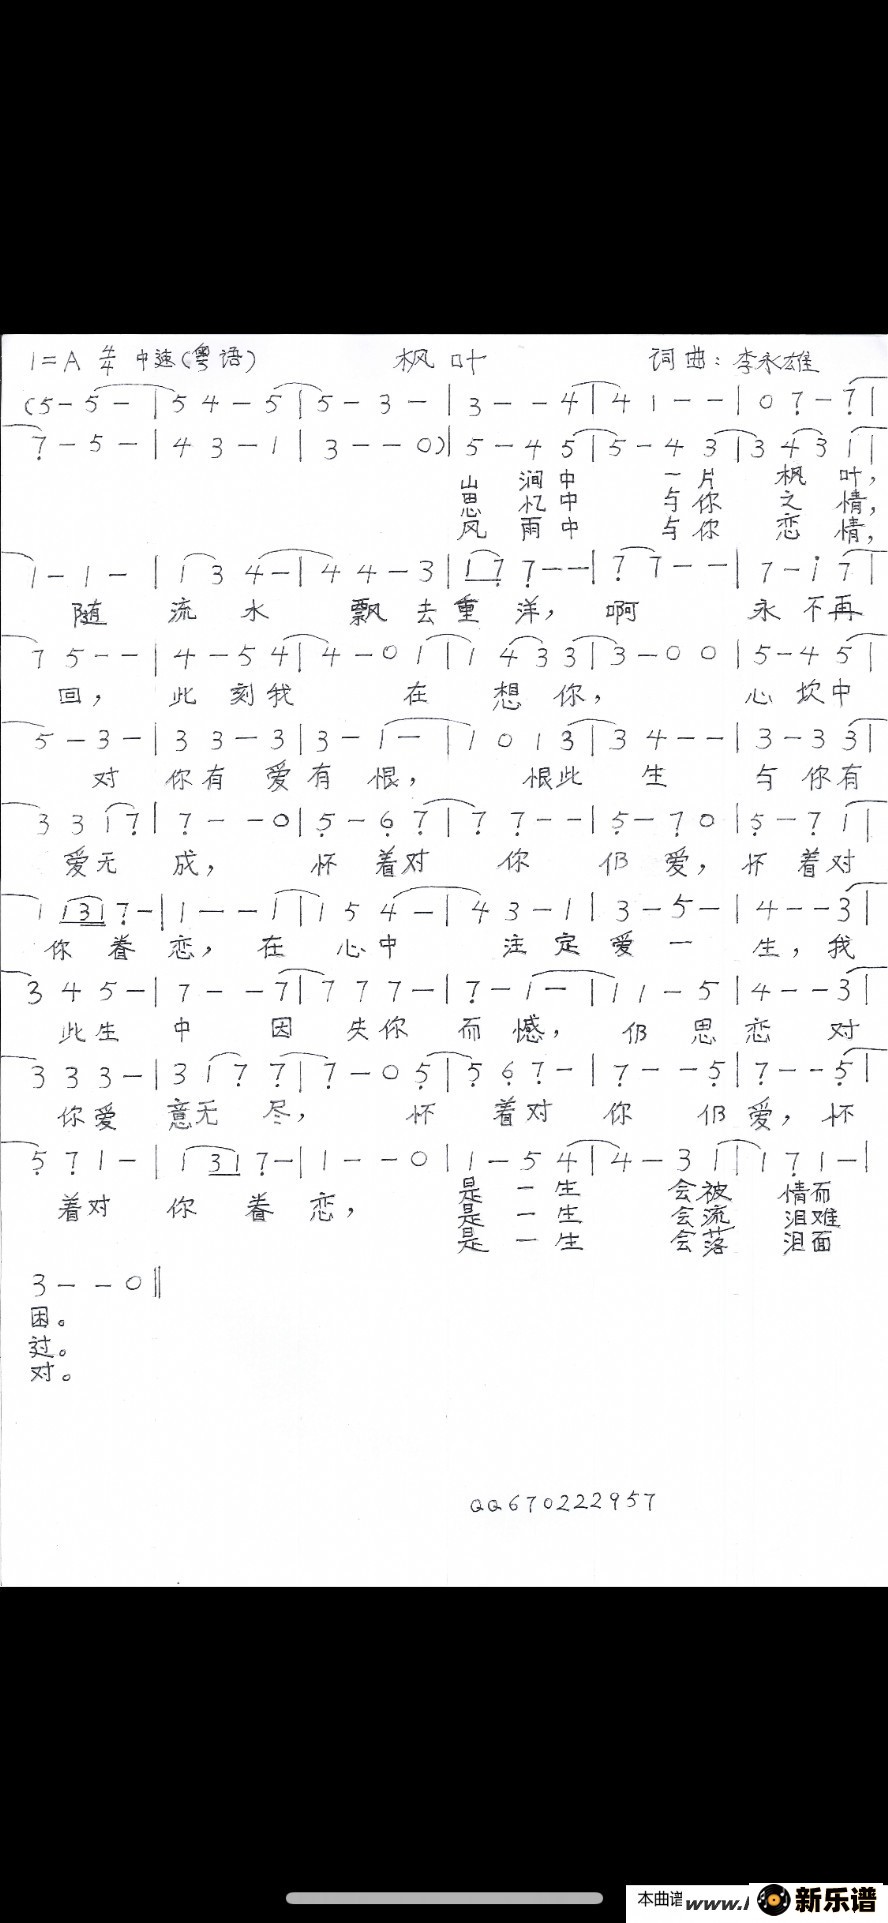 1=A 4/4 中速(粤语) 枫叶 词曲:李永雄
(5-5-|54-5|5-3-|3--4|41--|07-7|
7-5-|43-1|3--0)|5-45|5-43|3431|
山涧中 一片 枫叶,
思忆中 与你 之情,
风雨中 与你 恋情,
1-1-|134-|44-3|177--|77--|7-i7|
随 流水 飘去重洋, 啊 永不再
75--|4-54|4-01|1433|3-00|5-45|
回, 此刻我 在 想你, 心坎中
5-3-|33-3|3-1-|1013|34--|3-33|
对 你有爱有恨, 恨此 生 与你有
3317|7--0|5-67|77--|5-70|5-71|
爱无 成, 怀 着对 你 仍 爱, 怀着对
11317-|1--1|154-|43-1|3-5-|4--3|
你眷恋, 在 心中 注定爱一 生,我
345-|7--7|777-|7-1-|11-5|4--3|
此生 中 因 失你 而憾, 仍思恋 对
333-|3177|7-05|567-|7--5|7--5|
你爱 意无尽, 怀 着对 你 仍爱, 怀
571-|1317-|1--0|1-54|4-31|171-|
着对 你眷恋, 是一生 会被 情而
是一生 会流 泪难
是一生 会落 泪面
3--0‖
困。
过。
对。
QQ670222957
本曲谱 www. 新乐谱